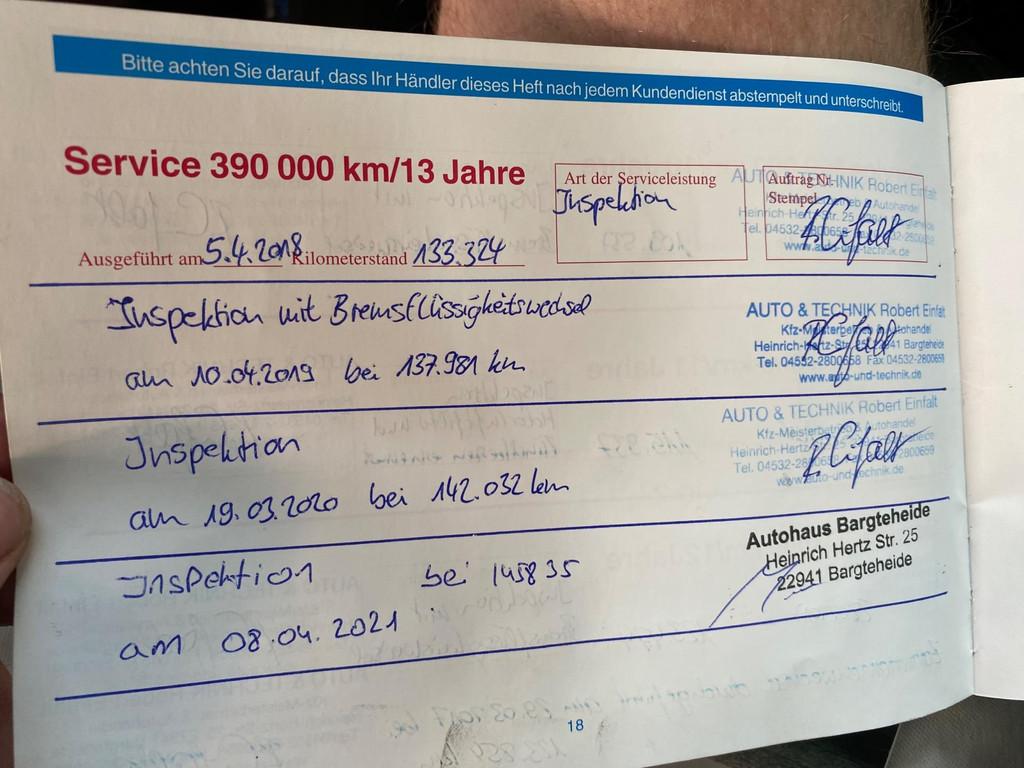 Bitte achten Sie darauf, dass Ihr Händler dieses Heft nach jedem Kundendienst abstempelt und unterschreibt.
Service 390 000 km/13 Jahre
Art der Serviceleistung
Inspektion
Auftrag Nr.
Stempel
AUTO & TECHNIK Robert Einfalt
Heinrich-Hertz-Str. 25
Tel. 04532-2800658
www.auto-und-technik.de
Ausgeführt am 5.4.2018 Kilometerstand 133.324
Inspektion mit Bremsflüssigkeitswechsel
am 10.04.2019 bei 137.981 km
AUTO & TECHNIK Robert Einfalt
Kfz-Meisterbetrieb & Autohandel
Heinrich-Hertz-Str. 25 22941 Bargteheide
Tel. 04532-2800658 Fax 04532-2800659
www.auto-und-technik.de
Inspektion
am 19.03.2020 bei 142.032 km
AUTO & TECHNIK Robert Einfalt
Kfz-Meisterbetrieb & Autohandel
Heinrich-Hertz
Tel. 04532-2800658
www.auto-und-technik.de
Inspektion bei 145835
am 08.04.2021
Autohaus Bargteheide
Heinrich Hertz Str. 25
22941 Bargteheide
18